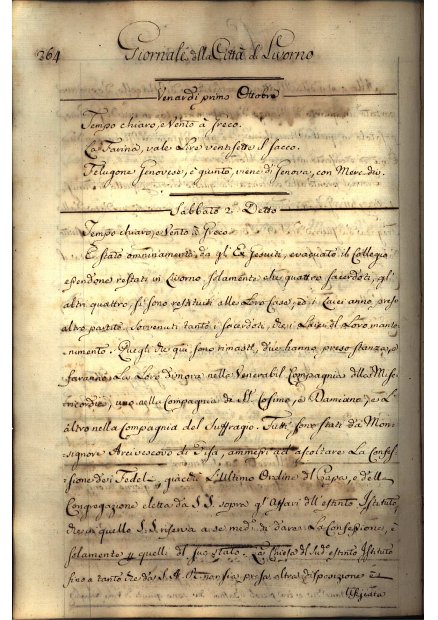 364 Giornale della Città di Livorno
Venardi primo Ottobre
Tempo chiaro, e Vento à Greco.
La Farina, vale Lire ventisette il sacco.
Felugone Genovese, è giunto, viene di Genova, con Mercdie.
Sabbato 2 Detto
Tempo chiaro, e Vento à Greco
È stato ominamente da gl' Ex Gesuiti, evacuato il Collegio
essendone restati in Livorno solamente che quattro sacerdoti, gl'
altri quattro, si sono restituiti alle Loro Case, ed i Laici anno preso
altro partito. Sovvenuti tanto i sacerdoti, che i Laici di Loro mante
nimento. Quegli che quà, sono rimasti, due hanno preso stanza, e
faranno La Loro dimora nella Venerabil Compagnia della Mise
ricordia, uno nella Compagnia di SS. Cosimo, e Damiano, e L'
altro nella Compagnia del Suffragio. Tutti sono stati da Mon
signore Arcivescovo di Pisa, ammessi ad ascoltare La Confes
sione dei Fedeli, giacchè L'ultimo Ordine del Papa, e della
Congregazione eletta da S.S. sopra gl'Affari dell'estinto Istituto,
che in quello S.S. riserva a se medmo di dare La Confessione, è
solamente p quelli del suo stato. La Chiesa del sudo estinto Istituto
fino a tanto che da S.A.R. non sia presa altra disposizione è